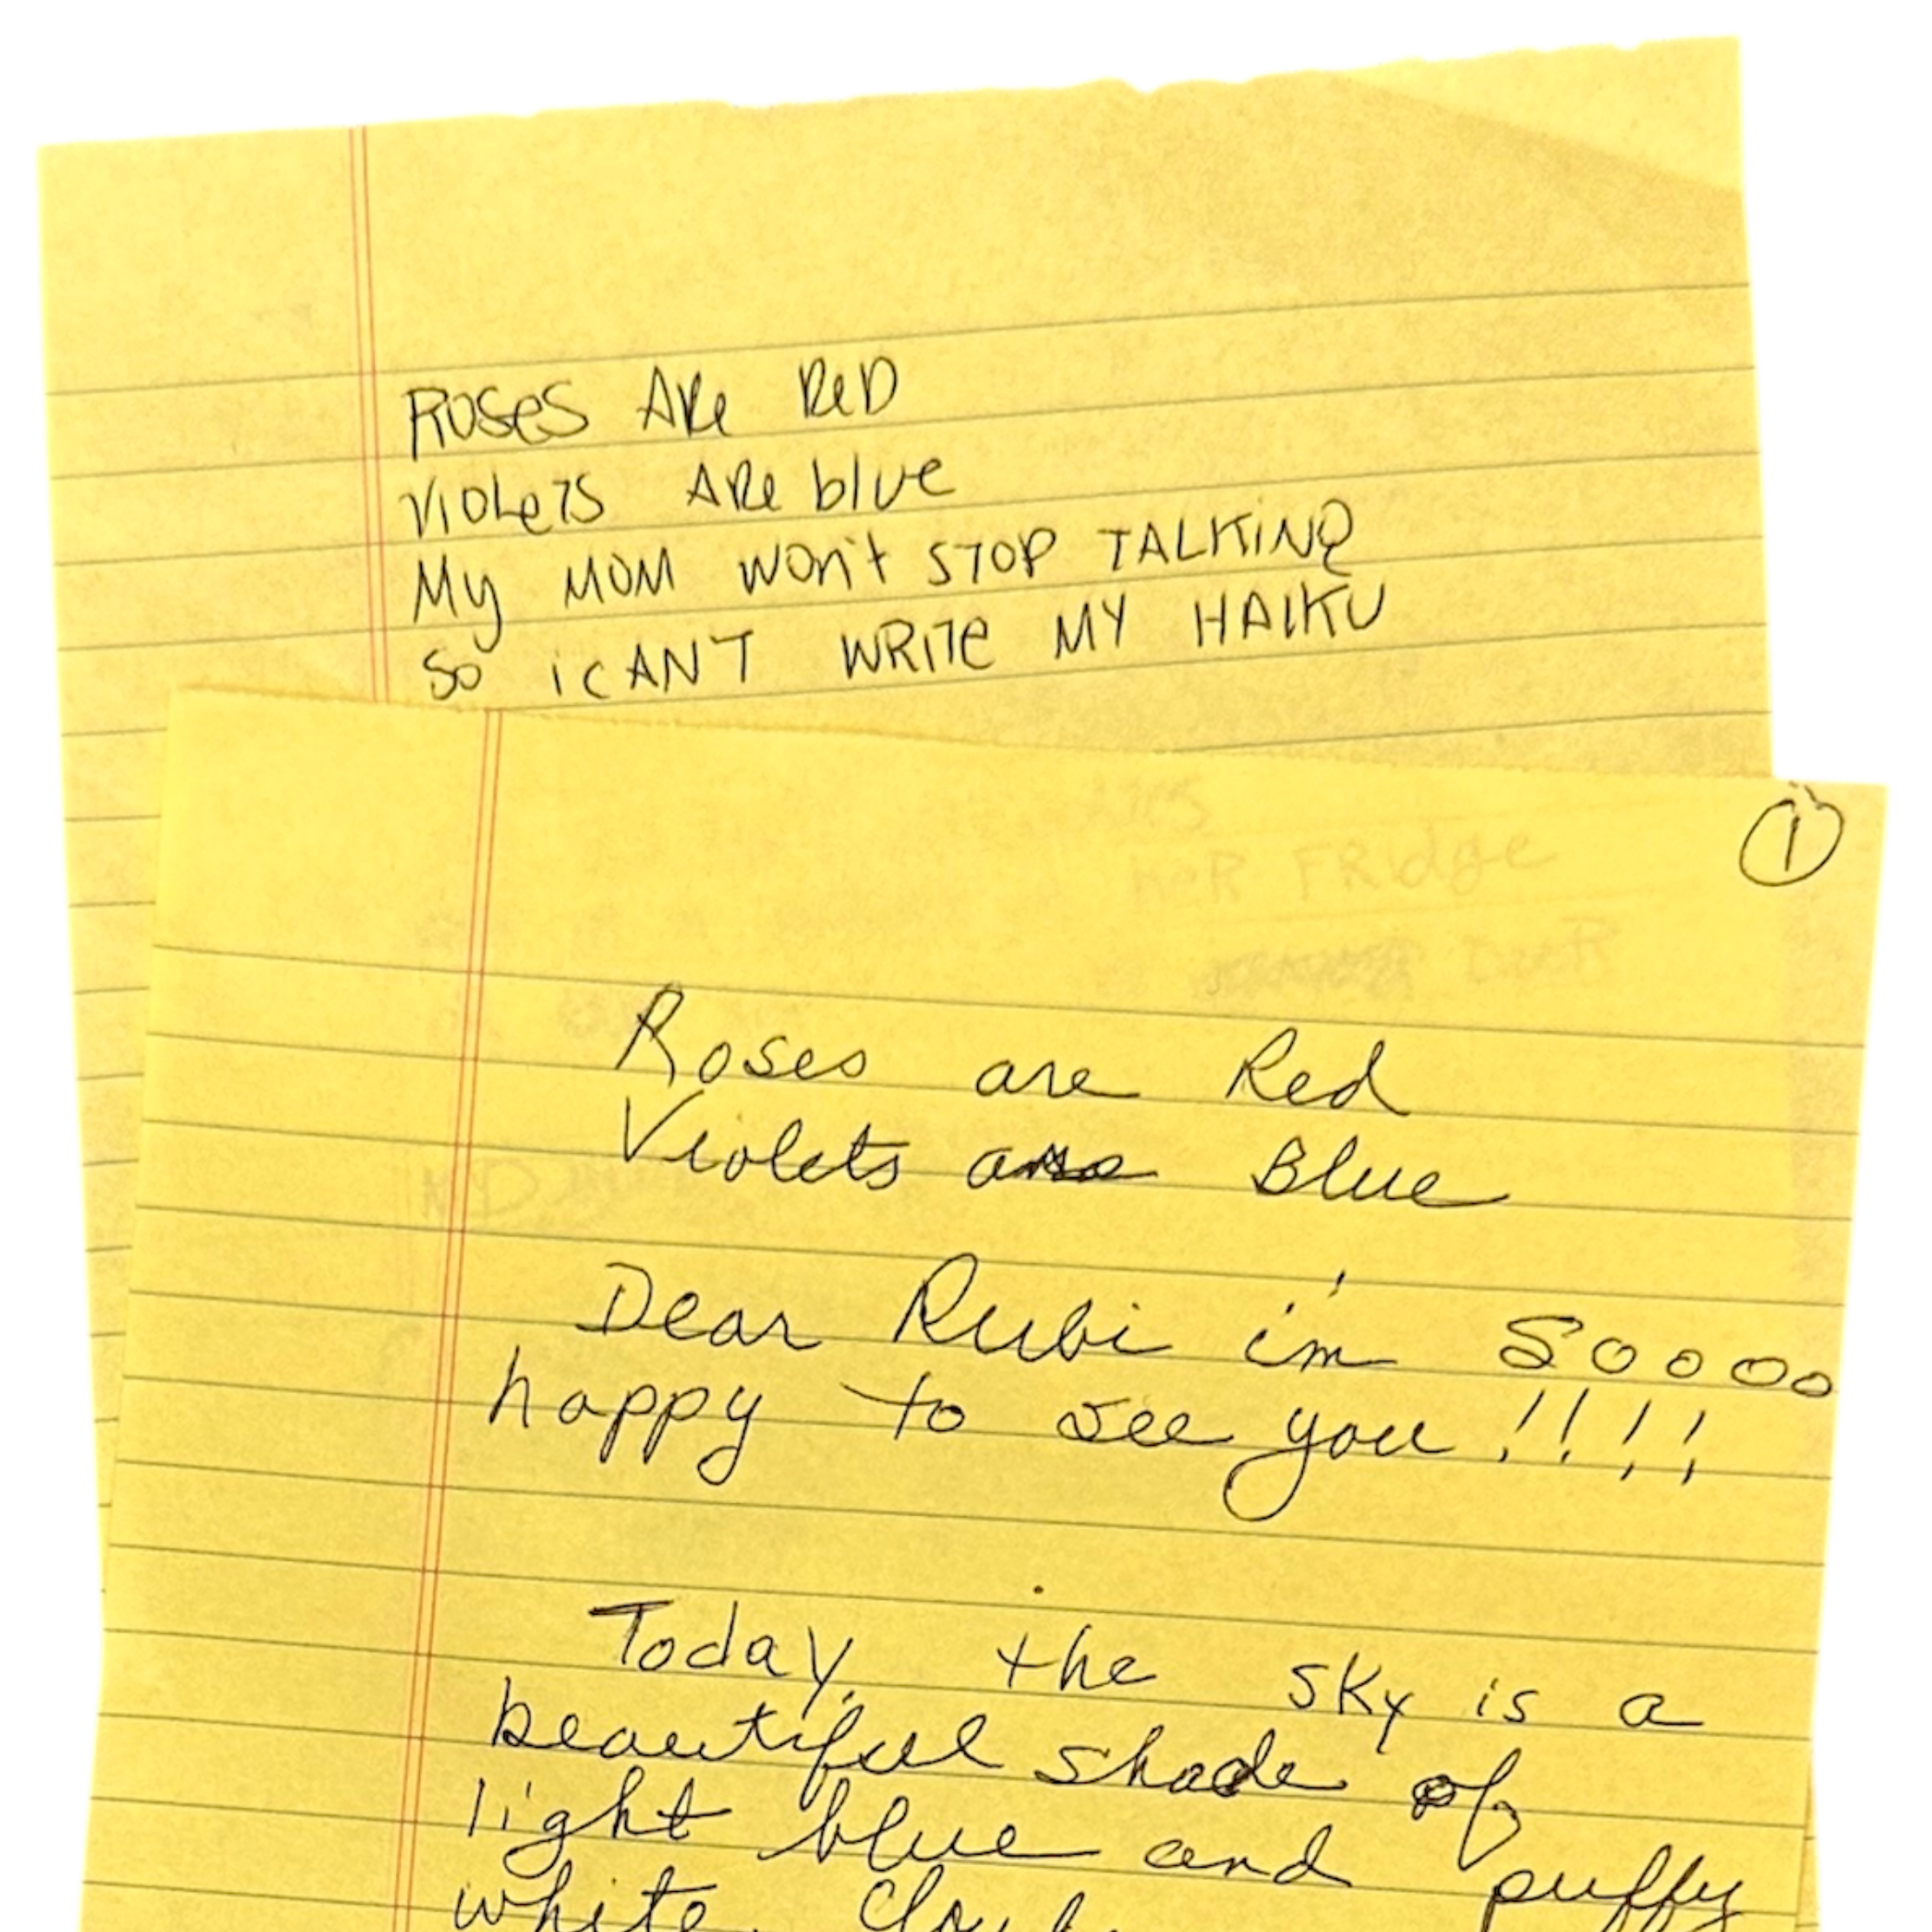 ROSES ARe ReD
VIOLeTS ARe blue
My MOM won't STOP TALKiNG
So i CAN'T WRiTe MY HAIKU
1
HeR FRidge
Roses are Red
Violets are Blue
Dear Rubi i'm Soooo
happy to see you !!!!
Today, the sky is a
beautiful shade of
light blue and puffy
white